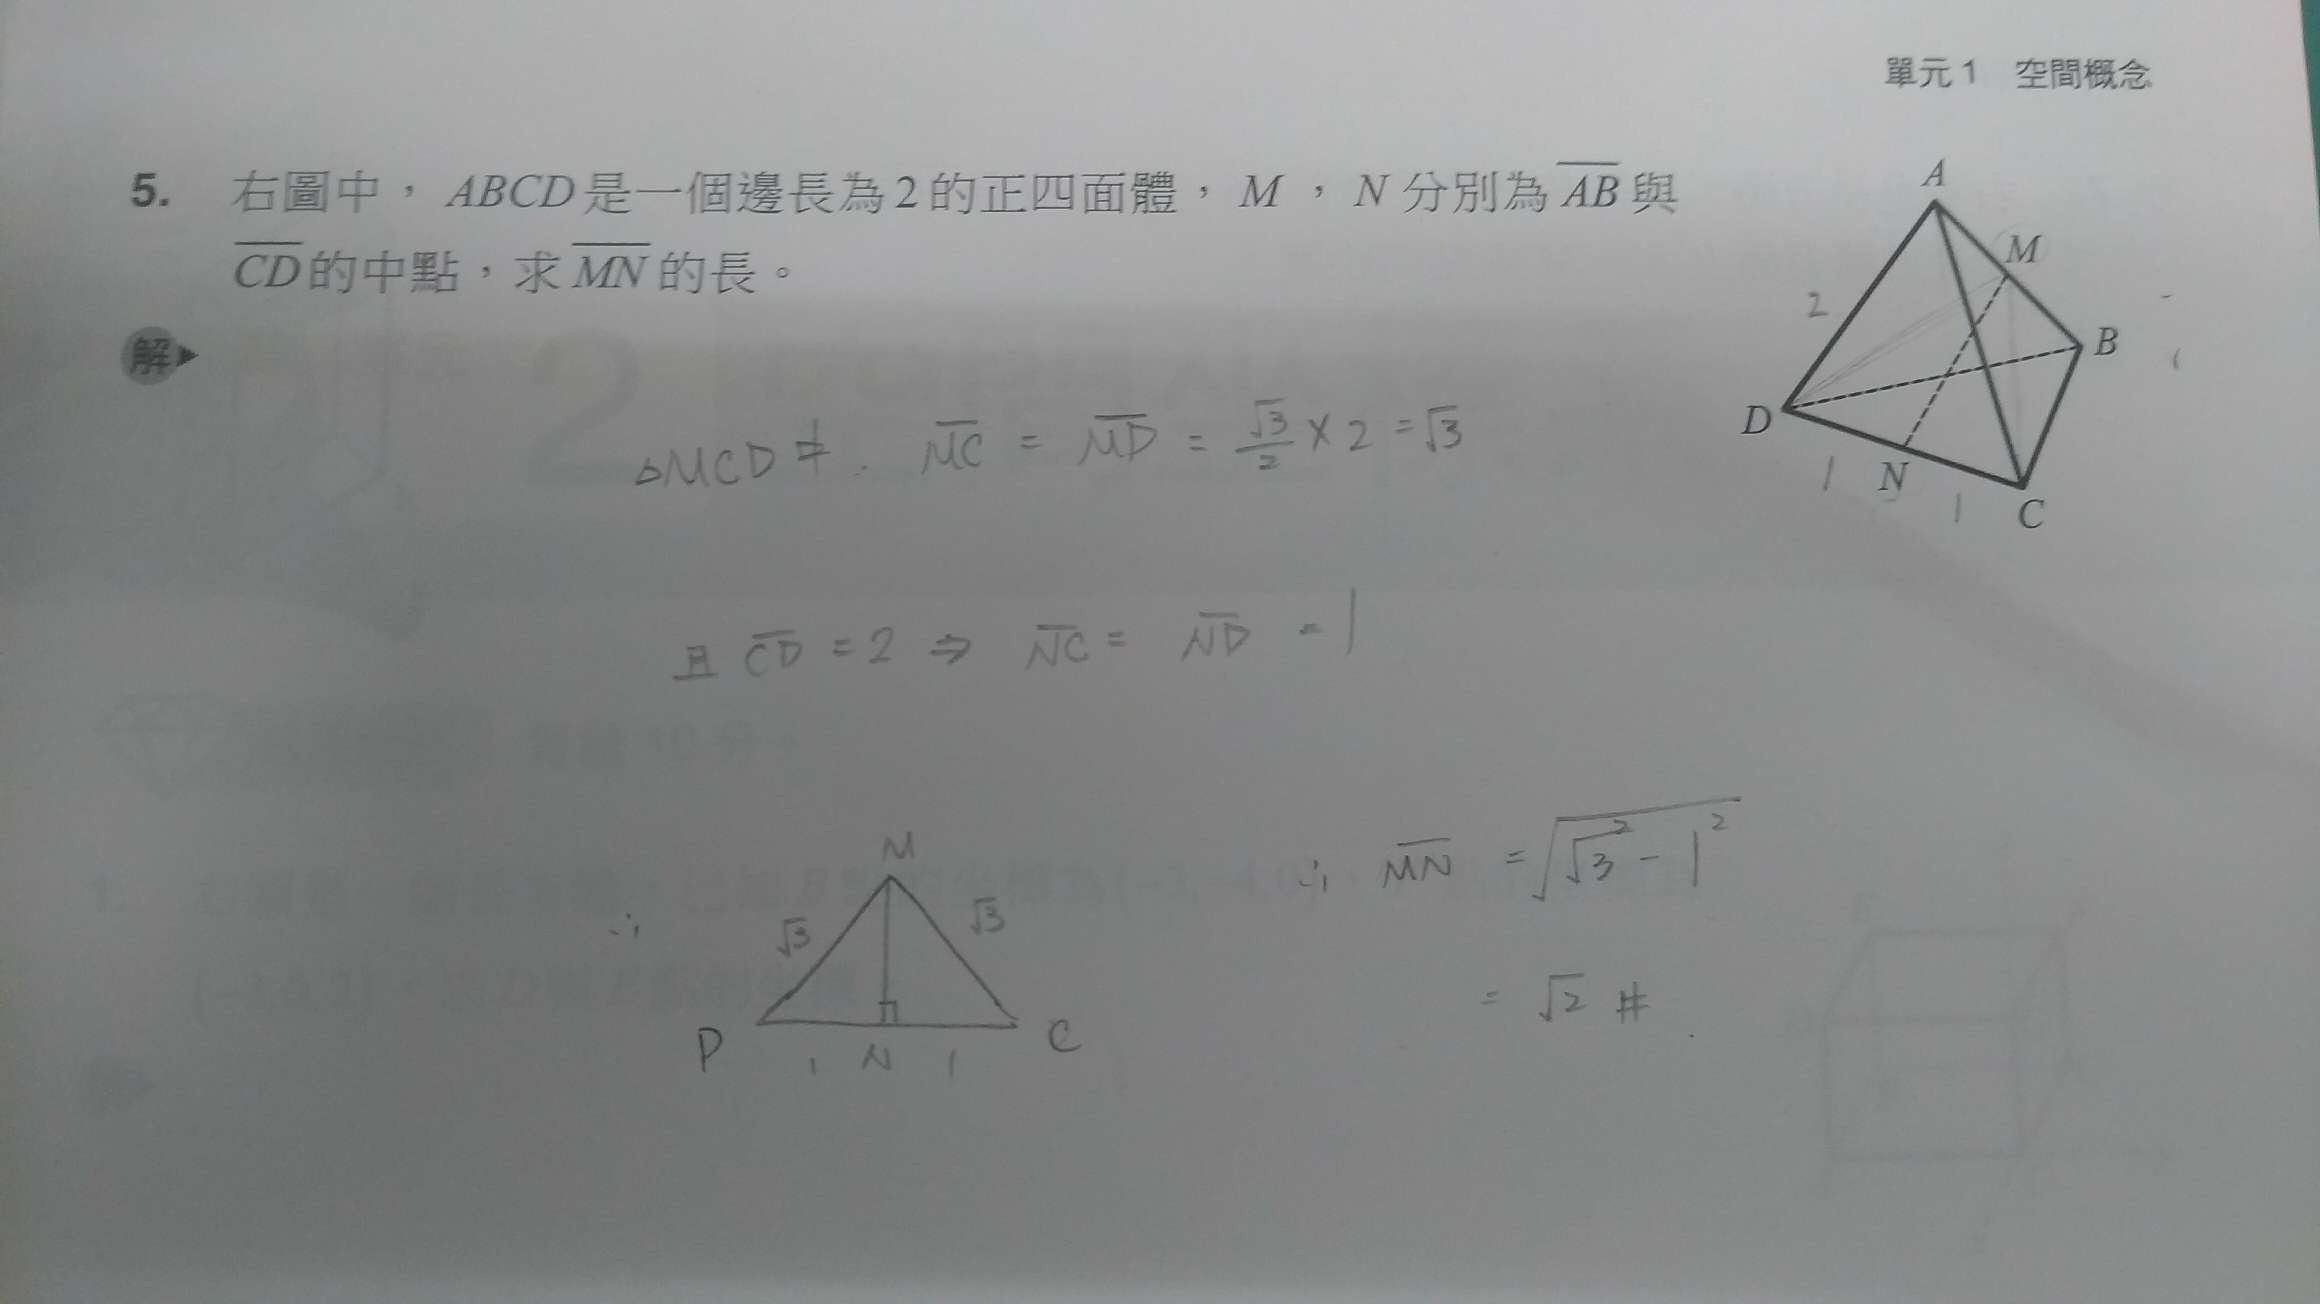 單元1 空間概念
5. 右圖中，ABCD是一個邊長為2的正四面體，M，N分別為AB與
CD的中點，求MN的長。
解
A
M
2
B
D
1
N
1
C
△MCD中. MC = MD = √3/2 × 2 = √3
且 CD = 2 ⇒ NC = ND = 1
M
√3
√3
D
C
1 N 1
∴
∴ MN = √(√3² - 1²)
= √2 #